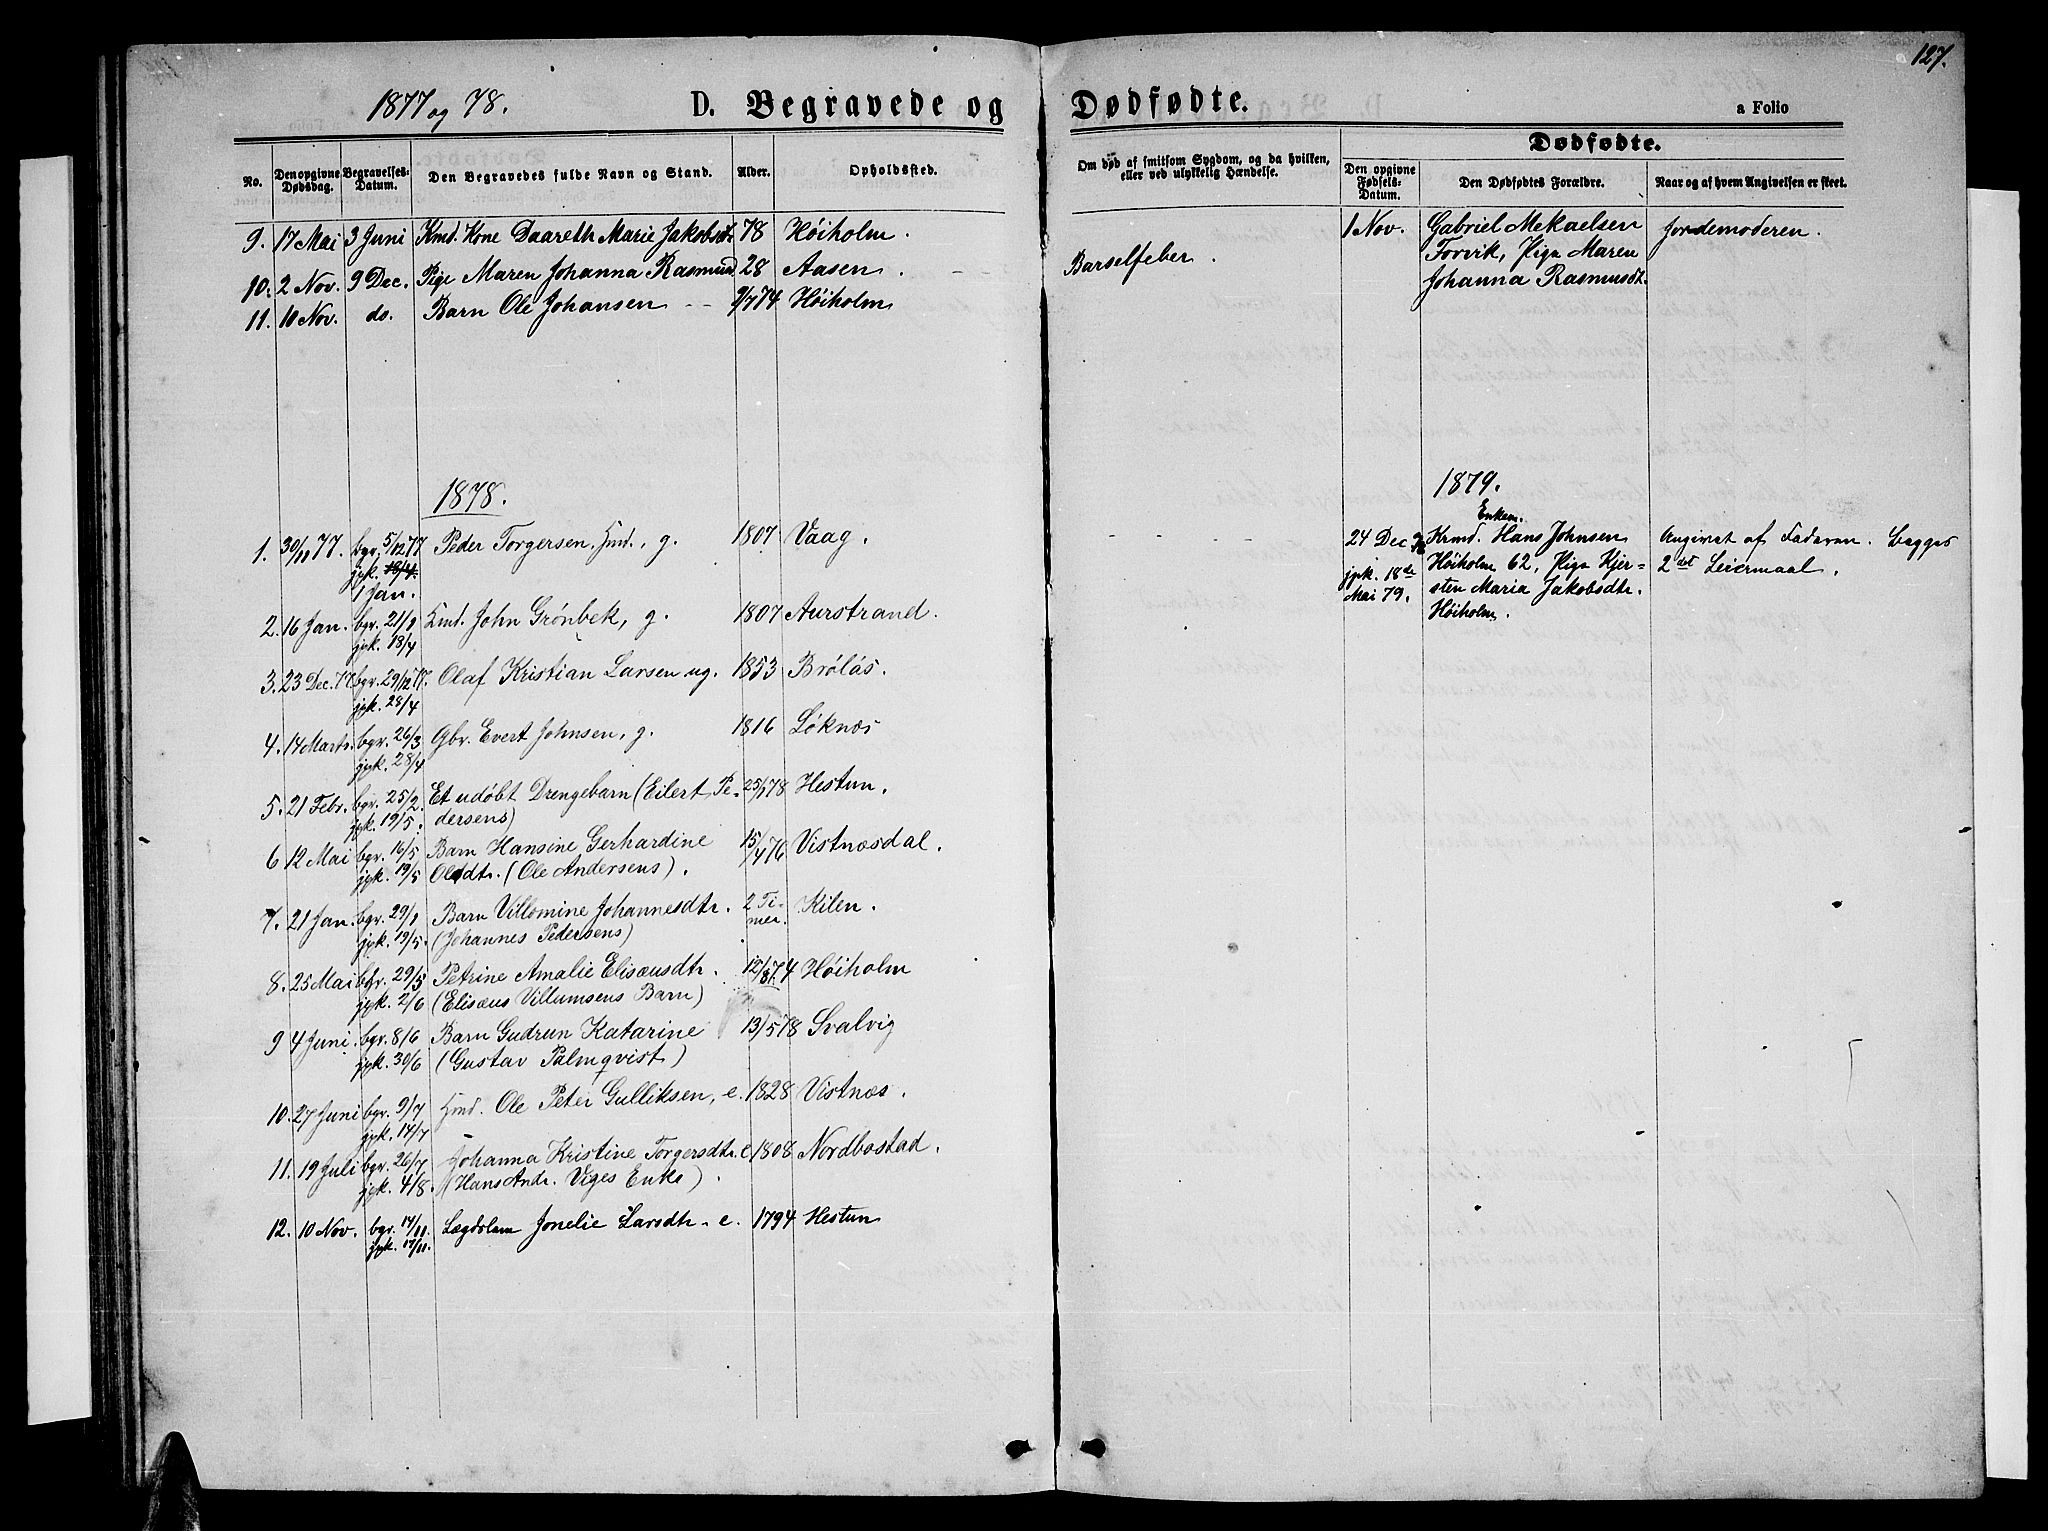 127.
1877 og 78. D. Begravede og Dødfødte. a Folio
No. Den opgivne Dødsdag. Begravelses-Datum. Den Begravedes fulde Navn og Stand. Alder. Opholdssted. Om død af smitsom Sygdom, og da hvilken, eller ved ulykkelig Hændelse. Dødfødte.
Den opgivne Fødsels-Datum. Den Dødfødtes Forældre. Naar og af hvem Angivelsen er skeet.
9. 17 Mai 3 Juni Kmd. Kone Daareth Marie Jakobsdtr 78 Høiholm.
10. 2 Nov. 9 Dec. Pige Maren Johanna Rasmusd 28 Aasen. Barselfeber.
11. 10 Nov. do. Barn Ole Johansen 9/7 74 Høiholm
1 Nov. Gabriel Mekaelsen Jordemoderen.
Forvik, Pige Maren
Johanna Rasmusdt.
1878.
1. 30/11 77. bgr. 5/12 77 Peder Torgersen, Hmd., g. 1807 Vaag.
jpk. 18/4.
1 Jan.
2. 16 Jan. bgr. 21/1 Hmd. John Grønbek, g. 1807 Aurstrand.
jpk. 18/4
3. 23 Dec. 77 bgr. 29/12 77. Olaf Kristian Larsen ug. 1853 Brølås.
jpk. 28/4
4. 14 Marts. bgr. 26/3 Gbr. Evert Johnsen, g. 1816 Løknæs
jpk. 28/4
5. 21 Febr. bgr. 25/2. Et udøbt Drengebarn (Eilert Pe- 25/1 78 Hestun.
jpk. 19/5. dersens)
6 12 Mai bgr. 16/5 Barn Hansine Gerhardine 15/4 76 Vistnæsdal.
jpk. 19/5 Olsdtr. (Ole Andersens).
7. 21 Jan. bgr. 29/1 Barn Villomine Johannesdtr. 2 Ti- Kilen.
jpk. 19/5. (Johannes Pedersens) mer.
8. 25 Mai bgr. 29/5 Petrine Amalie Elisæusdtr. 12/8 74 Høiholm
jpk. 2/6 (Elisæus Villumsens Barn)
9 4 Juni. bgr. 8/6 Barn Gudrun Katarine 13/5 78 Svalvig
jpk. 30/6 (Gustav Palmqvist)
10. 27 Juni bgr. 9/7 Hmd. Ole Peter Gulliksen, e. 1828 Vistnæs.
jpk. 14/7
11. 19 Juli bgr. 26/7 Johanna Kristine Torgersdtr. e 1808 Nordbostad.
jpk. 4/8. (Hans Andr. Viges Enke).
12. 10 Nov. bgr. 14/11. Lægdslem Jonelie Larsdtr. e. 1794 Hestun
jpk. 17/11.
1879.
Enkem.
24 Dec 78 Krmd. Hans Johnsen Angivet af Faderen. Begges
jpk. 18de Høiholm 62, Pige Kjer- 2det Leiermaal.
Mai 79. sten Maria Jakobsdtr.
Høiholm.